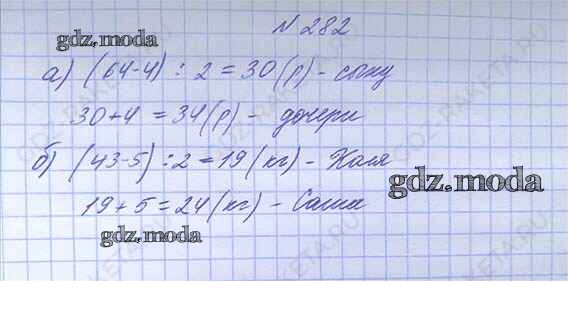 N 282
gdz.moda
а) (64-4) : 2 = 30 (р) - сыну
30+4 = 34 (р) - дочери
б) (43-5) : 2 = 19 (кг) - Коля
gdz.moda
19 + 5 = 24 (кг) - Саша
gdz.moda